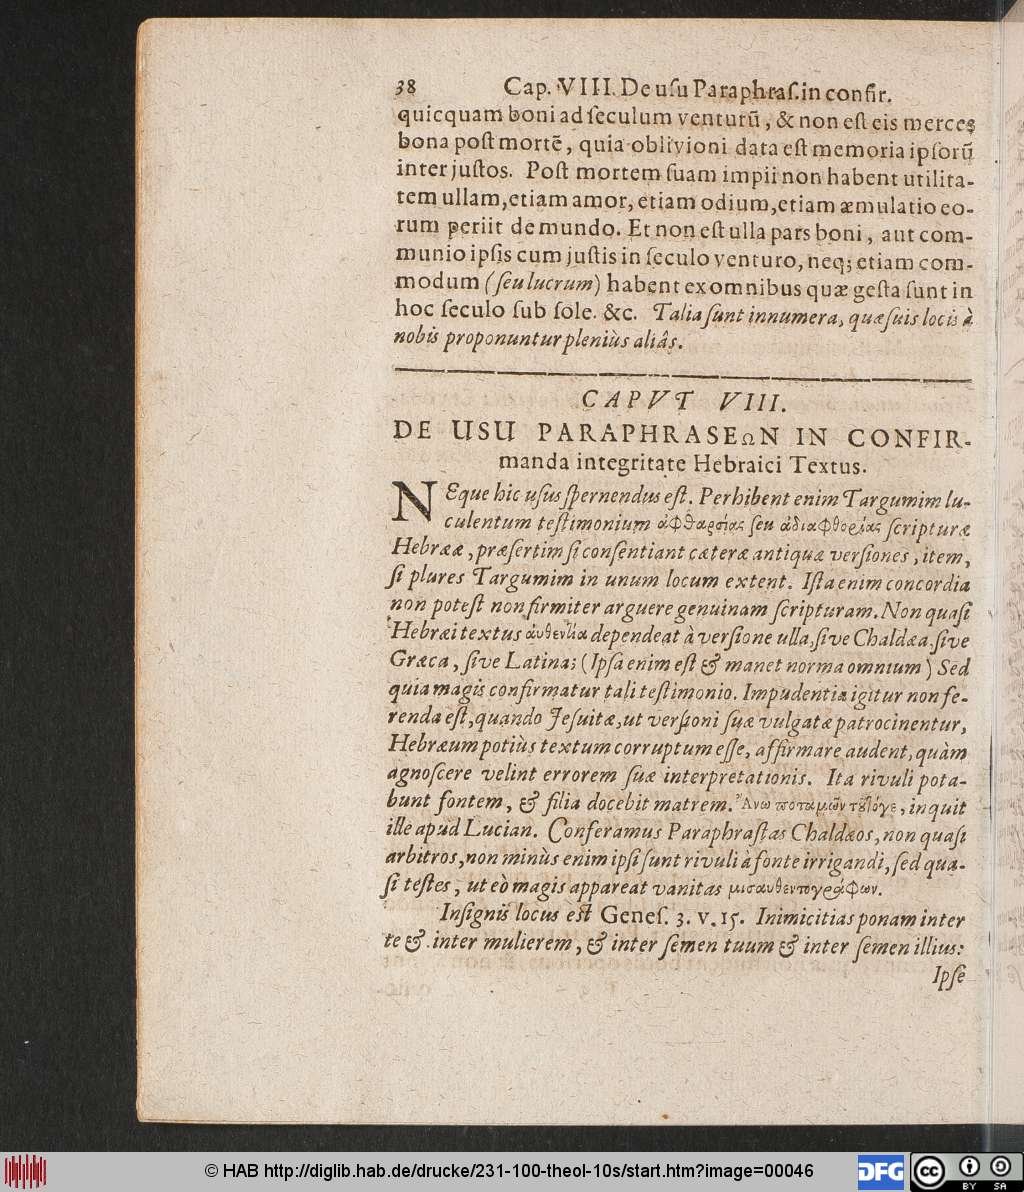 38 Cap. VIII. De usu Paraphraſ. in confir.
quicquam boni ad ſeculum venturũ, & non eſt eis merces
bona poſt mortẽ, quia oblivioni data eſt memoria ipſorũ
inter juſtos. Poſt mortem ſuam impii non habent utilita-
tem ullam, etiam amor, etiam odium, etiam æmulatio eo-
rum periit de mundo. Et non eſt ulla pars boni, aut com-
munio ipſis cum juſtis in ſeculo venturo, neq; etiam com-
modum (ſeu lucrum) habent ex omnibus quæ geſta ſunt in
hoc ſeculo ſub ſole. &c. Talia ſunt innumera, quæ ſuis locis à
nobis proponuntur pleniùs aliâs.
CAPVT VIII.
DE USU PARAPHRASEΩN IN CONFIR-
manda integritate Hebraici Textus.
NEque hic uſus ſpernendus eſt. Perhibent enim Targumim lu-
culentum teſtimonium ἀφθαρσίας ſeu ἀδιαφθορίας ſcripturæ
Hebrææ, præſertim ſi conſentiant cæteræ antiquæ verſiones, item,
ſi plures Targumim in unum locum extent. Iſta enim concordia
non poteſt non firmiter arguere genuinam ſcripturam. Non quaſi
Hebræi textus ἀυθεντία dependeat à verſione ulla, ſive Chaldæa, ſive
Græca, ſive Latina; (Ipſa enim eſt & manet norma omnium) Sed
quia magis confirmatur tali teſtimonio. Impudentia igitur non fe-
renda eſt, quando Jeſuitæ, ut verſioni ſuæ vulgatæ patrocinentur,
Hebræum potiùs textum corruptum eſſe, affirmare audent, quàm
agnoſcere velint errorem ſuæ interpretationis. Ita rivuli pota-
bunt fontem, & filia docebit matrem. Ἄνω ποταμῶν τȣ͂τόγε, inquit
ille apud Lucian. Conferamus Paraphraſtas Chaldæos, non quaſi
arbitros, non minùs enim ipſi ſunt rivuli à fonte irrigandi, ſed qua-
ſi teſtes, ut eò magis appareat vanitas μισαυθεντογράφων.
Inſignis locus eſt Geneſ. 3. v. 15. Inimicitias ponam inter
te & inter mulierem, & inter ſemen tuum & inter ſemen illius:
Ipſe
© HAB http://diglib.hab.de/drucke/231-100-theol-10s/start.htm?image=00046
DFG
cc
BY SA